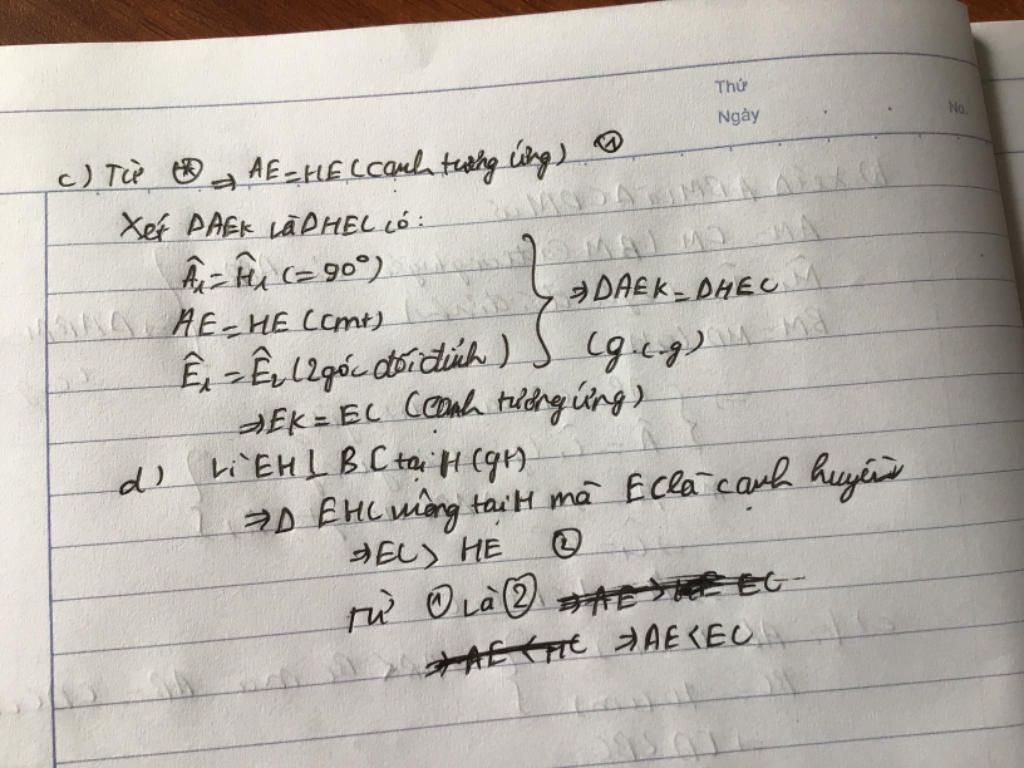 Thứ
Ngày
No.
c) Từ (*) ⇒ AE = HE (cạnh tương ứng) ①
Xét ΔAEK và ΔHEC có:
Â₁ = Ĥ₁ (= 90°)
AE = HE (cmt)
Ê₁ = Ê₂ (2 góc đối đỉnh)
⇒ ΔAEK = ΔHEC
(g.c.g)
⇒ EK = EC (cạnh tương ứng)
d) Vì EH ⊥ BC tại H (gt)
⇒ Δ EHC vuông tại H mà EC là cạnh huyền
⇒ EC > HE ②
Từ ① và ② ⇒ AE > EC
⇒ AE < HC ⇒ AE < EC